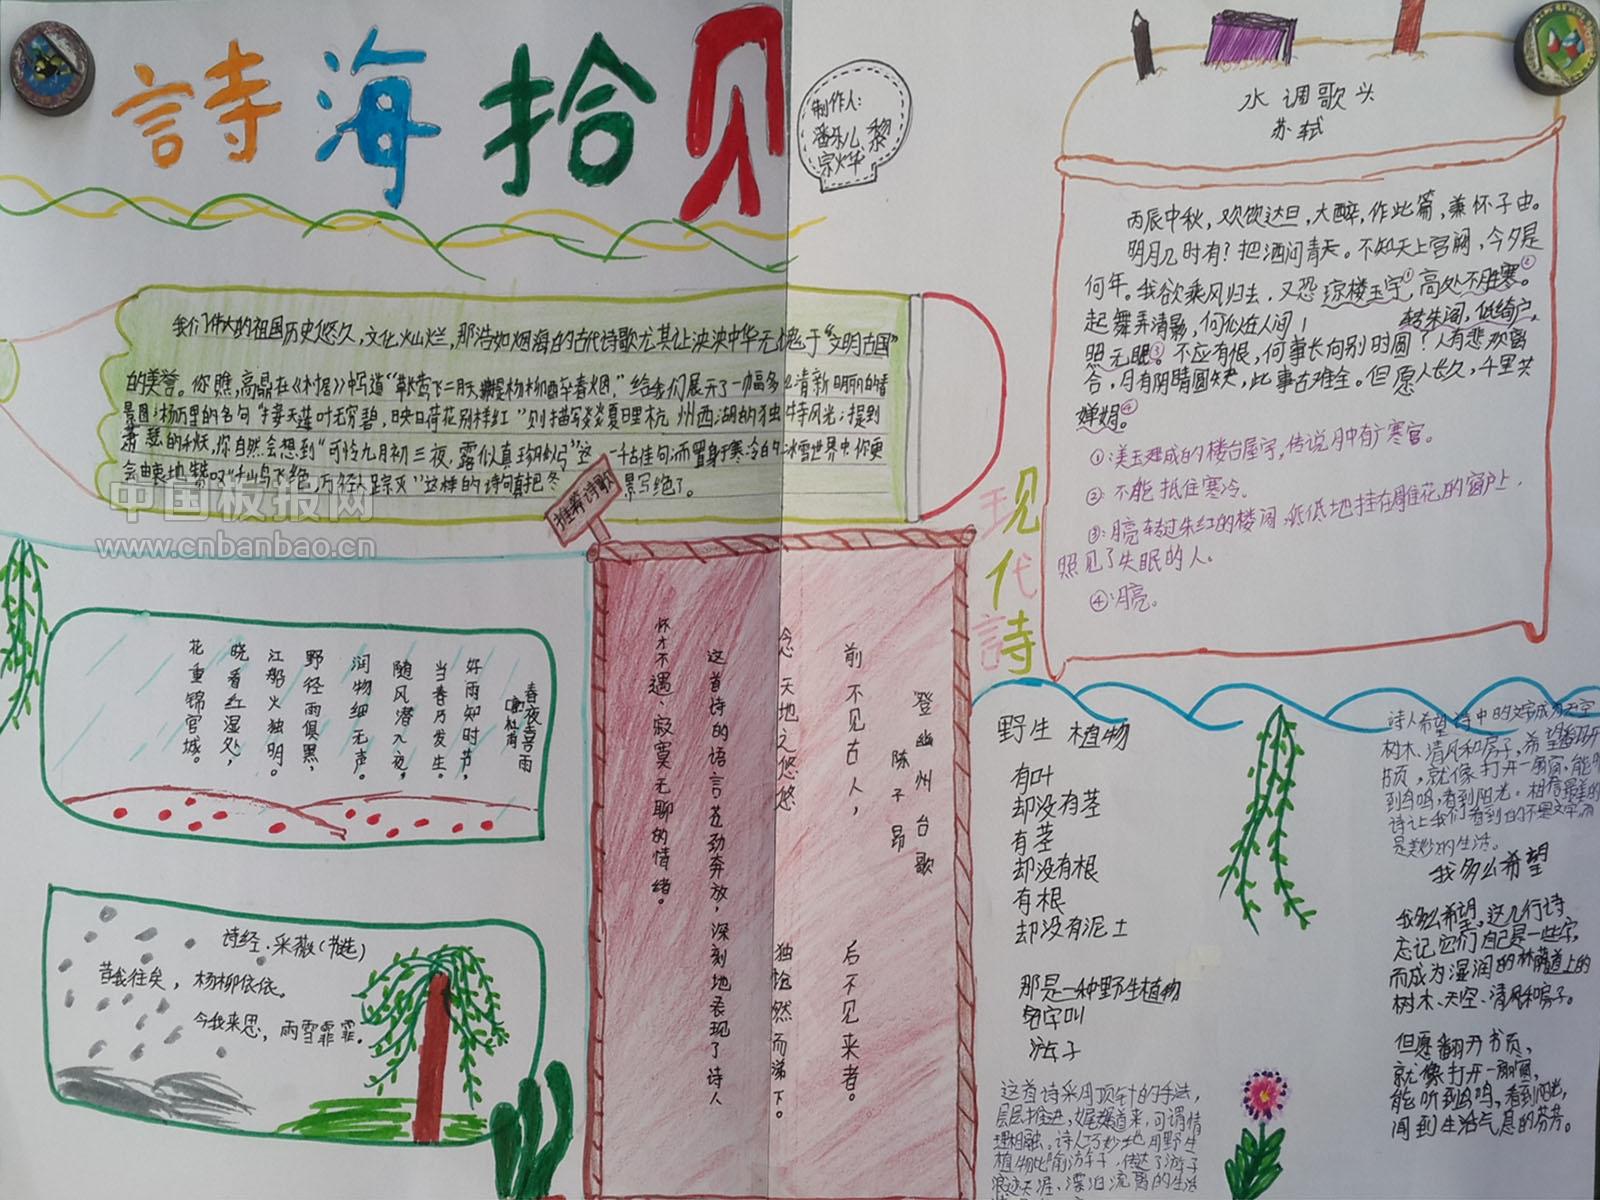 詩海拾贝
制作人:
潘乐儿、黎
宗烨
我们伟大的祖国历史悠久,文化灿烂,那浩如烟海的古代诗歌尤其让泱泱中华无愧于“文明古国”
的美誉。你瞧,高鼎在《村居》中写道“草长莺飞二月天,拂堤杨柳醉春烟,”给我们展示了一幅多么清新明丽的春
景图;杨万里的名句“接天莲叶无穷碧,映日荷花别样红”则描写炎炎夏日里杭州西湖的独特风光;提到
萧瑟的秋,你自然会想到“可怜九月初三夜,露似真珠月似弓”这一千古佳句;而置身于寒冷的冰雪世界中,你更
会由衷地赞叹“千山鸟飞绝,万径人踪灭”这样的诗句真把冬景写绝了。
中国板报网
www.cnbanbao.cn
推荐诗歌
春夜喜雨
唐 杜甫
好雨知时节,
当春乃发生。
随风潜入夜,
润物细无声。
野径云俱黑,
江船火独明。
晓看红湿处,
花重锦官城。
诗经·采薇(节选)
昔我往矣,杨柳依依。
今我来思,雨雪霏霏。
登幽州台歌
陈子昂
前不见古人,后不见来者。
念天地之悠悠 独怆然而涕下。
这首诗的语言苍劲奔放,深刻地表现了诗人
怀才不遇、寂寞无聊的情绪。
水调歌头
苏轼
丙辰中秋,欢饮达旦,大醉,作此篇,兼怀子由。
明月几时有?把酒问青天。不知天上宫阙,今夕是
何年。我欲乘风归去,又恐琼楼玉宇①,高处不胜寒②。
起舞弄清影,何似在人间! 转朱阁,低绮户,
照无眠③。不应有恨,何事长向别时圆?人有悲欢离
合,月有阴晴圆缺,此事古难全。但愿人长久,千里共
婵娟④。
①:美玉建成的楼台屋宇,传说月中有广寒宫。
②:不能抵住寒冷。
③:月亮转过朱红的楼阁,低低地挂在雕花的窗户上,
照见了失眠的人。
④:月亮。
现代詩
野生植物
有叶
却没有茎
有茎
却没有根
有根
却没有泥土
那是一种野生植物
名字叫
游子
这首诗采用顶针的手法,
层层推进,娓娓道来,可谓情
理相融。诗人巧妙地用野生
植物比喻游子,传达了游子
浪迹天涯、漂泊流离的生活
诗人希望诗中的文字成为天空
树木、清风和房子,希望翻开
书页,就像打开一扇窗,能听
到鸟鸣,看到阳光。相信最美的
诗让我们看到的不是文字,而
是美妙的生活。
我多么希望
我多么希望,这几行诗
忘记它们自己是一些字,
而成为湿润的林荫道上的
树木、天空、清风和房子。
但愿翻开书页,
就像打开一扇窗,
能听到鸟鸣,看到阳光,
闻到生活气息的芬芳。